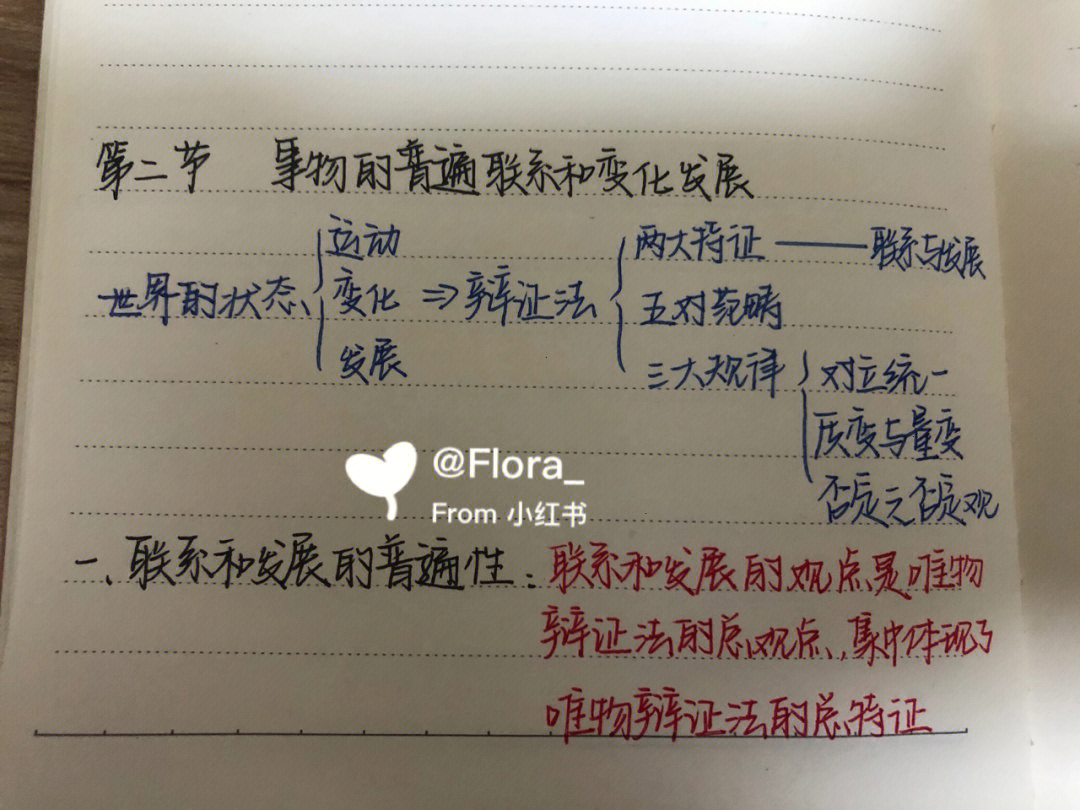 第二节 事物的普遍联系和变化发展
世界的状态 运动 变化 发展 ⇒ 辩证法
两大特证 —— 联系与发展
五对范畴
三大规律 对立统一
质变与量变
否定之否定观
@Flora_
From 小红书
一、联系和发展的普遍性：联系和发展的观点是唯物
辩证法的总观点，集中体现了
唯物辩证法的总特证